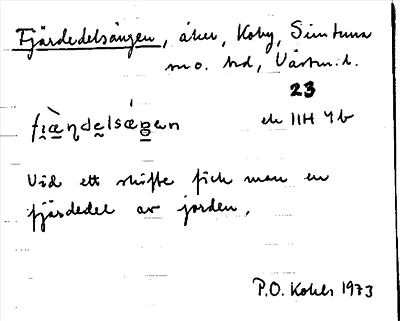 Fjärdedelsången, åker, Koby, Simtuna
sn o. hd, Västm. l.
23
fi̯æ̀ṇdelsáŋen ek 11H 4b
Vid ett skifte fick man en
fjärdedel av jorden.
P.O. Kohls 1973